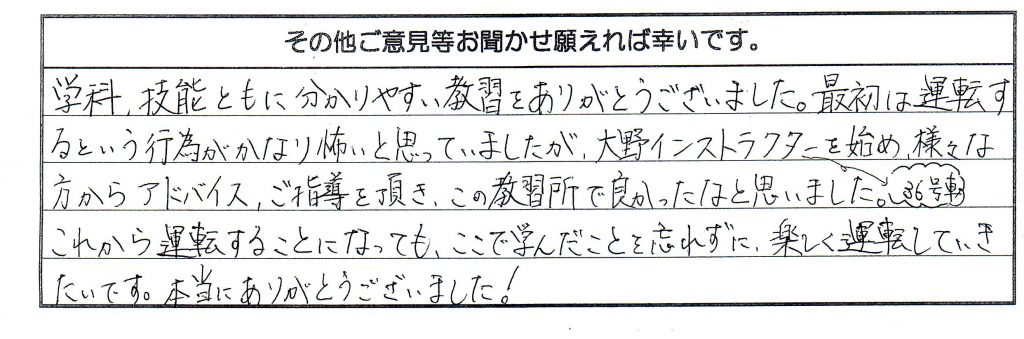 その他ご意見等お聞かせ願えれば幸いです。
学科、技能ともに分かりやすい教習をありがとうございました。最初は運転す
るという行為がかなり怖いと思っていましたが、大野インストラクターを始め、様々な
方からアドバイス、ご指導を頂き、この教習所で良かったなと思いました。36号車
これから運転することになっても、ここで学んだことを忘れずに、楽しく運転していき
たいです。本当にありがとうございました!